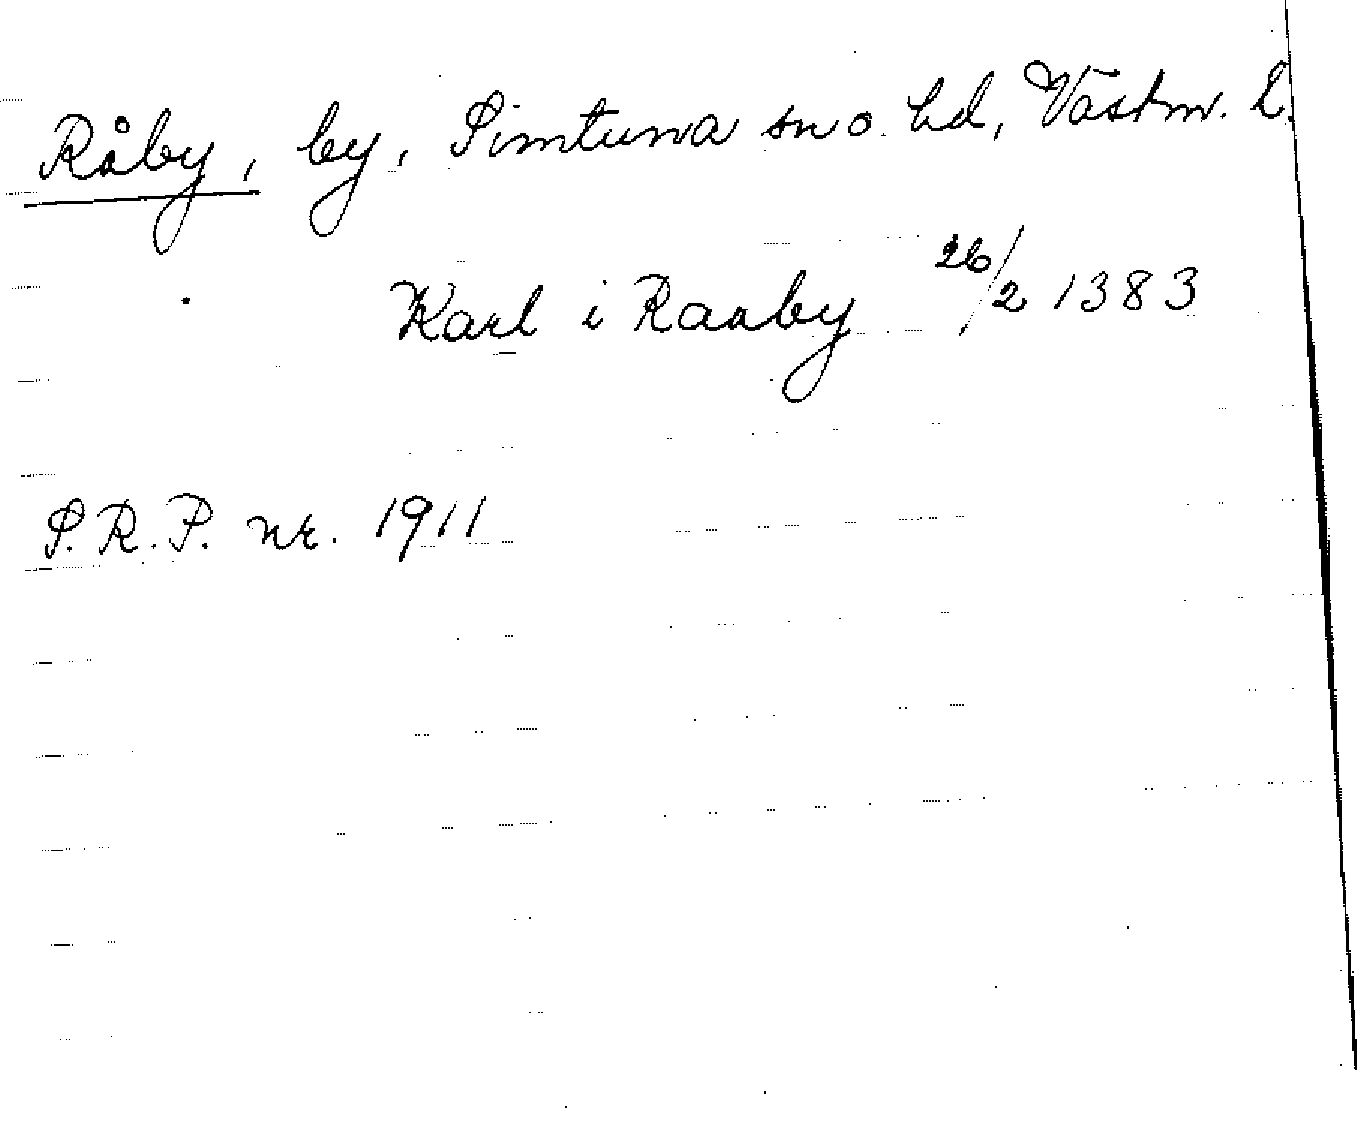 Råby, by, Simtuna sn o. hd, Västm. L.
Karl i Raaby 26/2 1383
S.R.P. nr. 1911